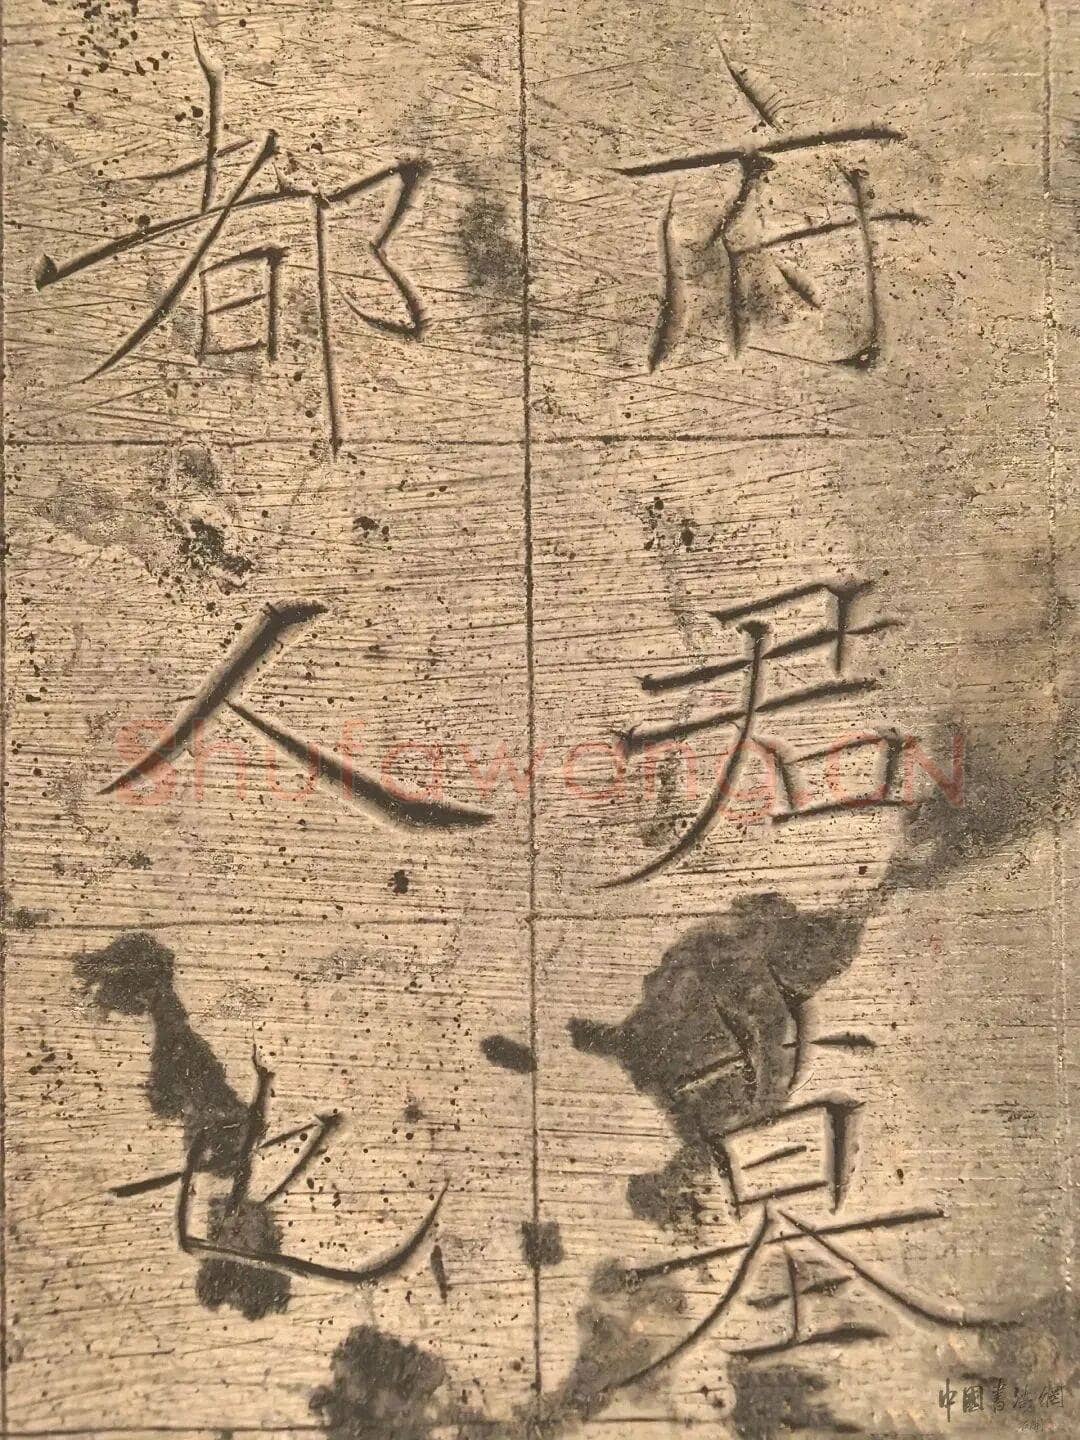 府君墓
都人也
Shufawang.CN
中國書法網